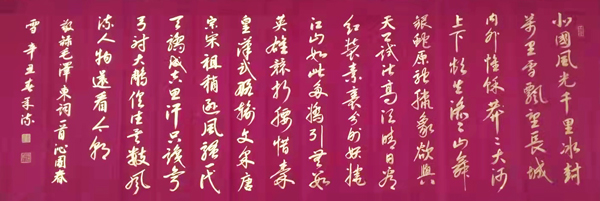 北國風光千里冰封
萬里雪飄望長城
內外惟餘莽々大河
上下頓失滔々山舞
銀蛇原馳蠟象欲與
天公試比高須晴日看
紅裝素裹分外妖嬈
江山如此多嬌引無數
英雄競折腰惜秦
皇漢武略輸文采唐
宗宋祖稍遜風騷一代
天驕成吉思汗只識彎
弓射大雕俱往矣數風
流人物還看今朝
敬錄毛澤東詞一首沁園春
雪 辛丑春